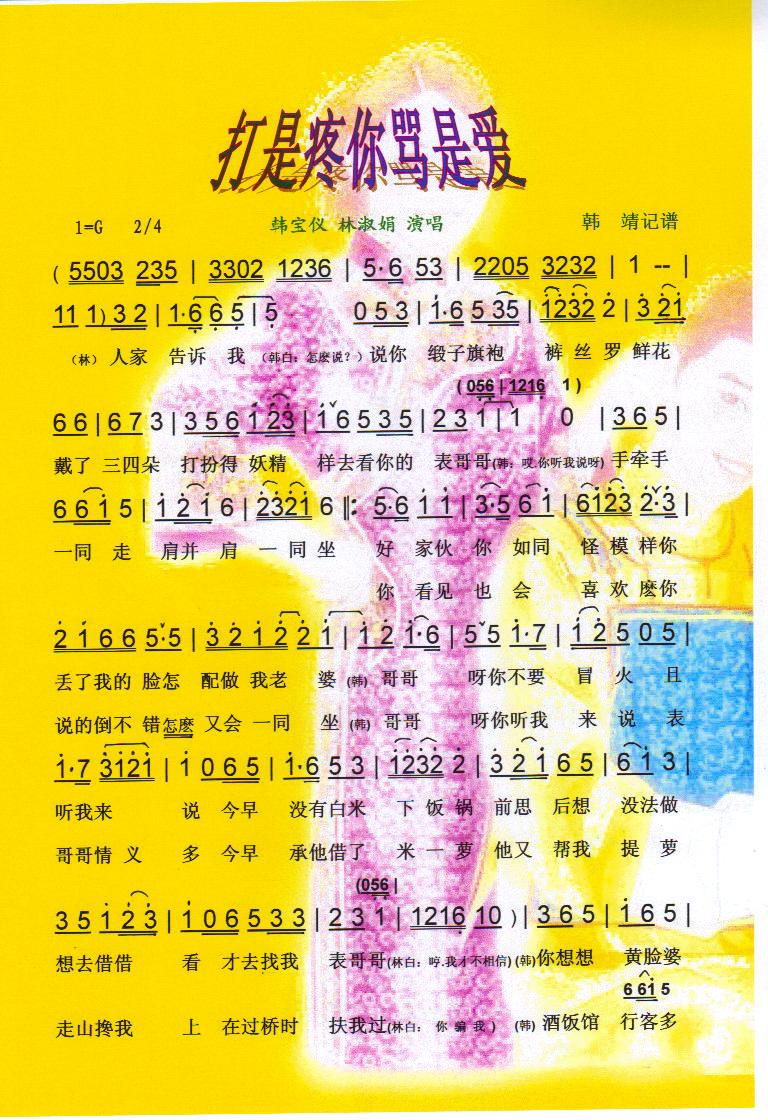 打是疼你骂是爱
1=G 2/4 韩宝仪 林淑娟 演唱 韩 靖记谱
( 5503 235 | 3302 1236 | 5·6 53 | 2205 3232 | 1 -- |
11 1) 3 2 | 1·6 6 5 | 5 0 5 3 | 1·6 5 35 | 1232 2 | 3 21
(林) 人家 告诉 我 (韩白:怎麽说?) 说你 缎子旗袍 裤 丝 罗 鲜花
( 056 | 1216 1 )
6 6 | 6 7 3 | 3 5 6 1 23 | 1 6 5 3 5 | 2 3 1 | 1 0 | 3 6 5 |
戴了 三四朵 打扮得 妖精 样去看你的 表哥哥(韩:哎.你听我说呀) 手牵手
6 6 1 5 | 1 2 1 6 | 2321 6 ‖: 5·6 1 1 | 3·5 6 1 | 6123 2·3 |
一同 走 肩并 肩 一 同 坐 好 家伙 你 如同 怪 模 样你
你 看见 也 会 喜 欢 麽你
2 1 6 6 5·5 | 3 2 1 2 2 1 | 1 2 1·6 | 5 5 1·7 | 1 2 5 0 5 |
丢了我的 脸怎 配做 我老 婆 (韩) 哥哥 呀你不要 冒 火 且
说的倒不 错怎麽 又会 一同 坐 (韩) 哥哥 呀你听我 来 说 表
1·7 3121 | 1 0 6 5 | 1·6 5 3 | 1232 2 | 3 2 1 6 5 | 6 1 3 |
听我来 说 今早 没有白米 下 饭 锅 前思 后想 没法做
哥哥情 义 多 今早 承他借了 米 一 萝 他又 帮我 提 萝
(056 |
3 5 1 2 3 | 1 0 6 5 3 3 | 2 3 1 | 1216 10 ) | 3 6 5 | 1 6 5 |
想去借借 看 才去找我 表哥哥(林白:哼.我才不相信) (韩)你想想 黄脸婆
6 61 5
走山搀我 上 在过桥时 扶我过(林白: 你 骗 我 ) (韩) 酒饭馆 行客多